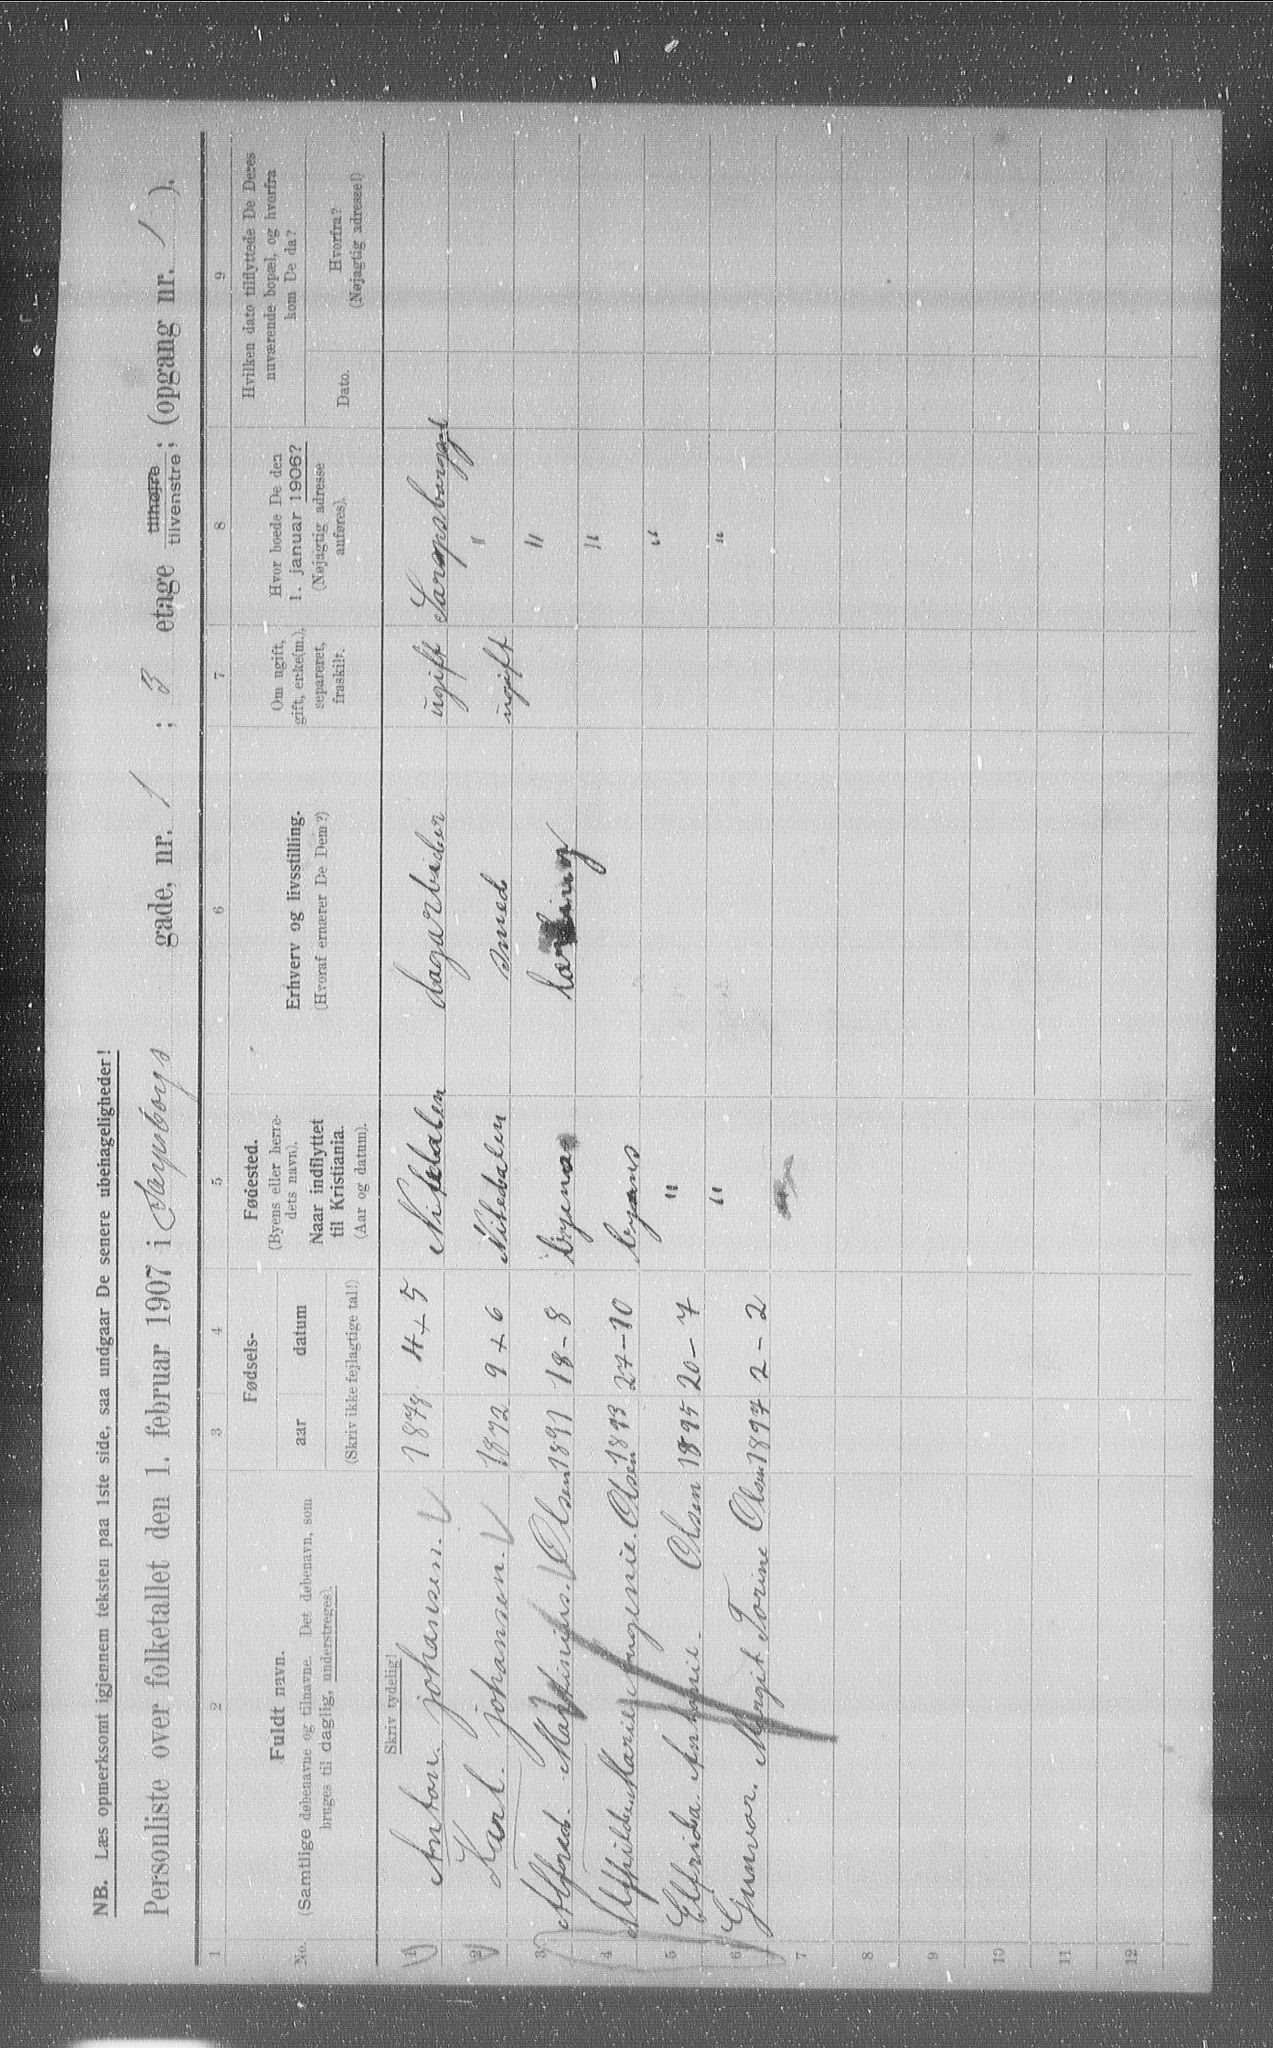 NB. Læs opmerksomt igjennem teksten paa 1ste side, saa undgaar De senere ubehageligheder!
Personliste over folketallet den 1. februar 1907 i Sarpsborgs gade, nr. 1 ; 3 etage tilhøjre tilvenstre ; (opgang nr. 1 ).
1 2 3 4 5 6 7 8 9
No.
Fuldt navn.
(Samtlige døbenavne og tilnavne. Det døbenavn, som
bruges til daglig, understreges).
Fødsels-
aar datum
(Skriv ikke fejlagtige tal!)
Fødested.
(Byens eller herre-
dets navn).
Naar indflyttet
til Kristiania.
(Aar og datum).
Erhverv og livsstilling.
(Hvoraf ernærer De Dem?)
Om ugift,
gift, enke(m.),
separeret,
fraskilt.
Hvor boede De den
1. januar 1906?
(Nøjagtig adresse
anføres).
Hvilken dato tilflyttede De Deres
nuværende bopæl, og hvorfra
kom De da?
Dato.
Hvorfra?
(Nøjagtig adresse!)
Skriv tydelig!
1 Anton. johansen. 1878 4+5 Nitedalen dagarbider ugift
2 Karl. johansen. 1872 9+6 Nitedalen smed ugift "
3 Alfred. Martinius. Olsen 1891 18-8 "
4 Marie Eugenie. Olsen 1893 27-10 "
5 Elfrida. Antonie. Olsen 1895 20-7 " "
6 Gunvor. Margit. Torine Olsen 1897 2-2 " "
7
8
9
10
11
12